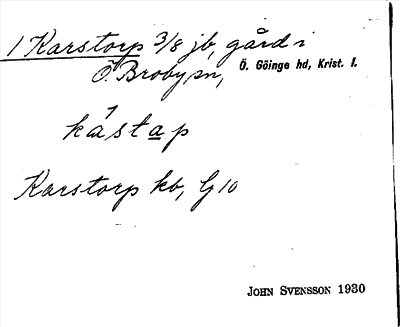 1 Karstorp 3/8 jb, gård i
Ö. Broby sn, Ö. Göinge hd, Krist. l.
kástap
Karstorp kb, G 10
JOHN SVENSSON 1930